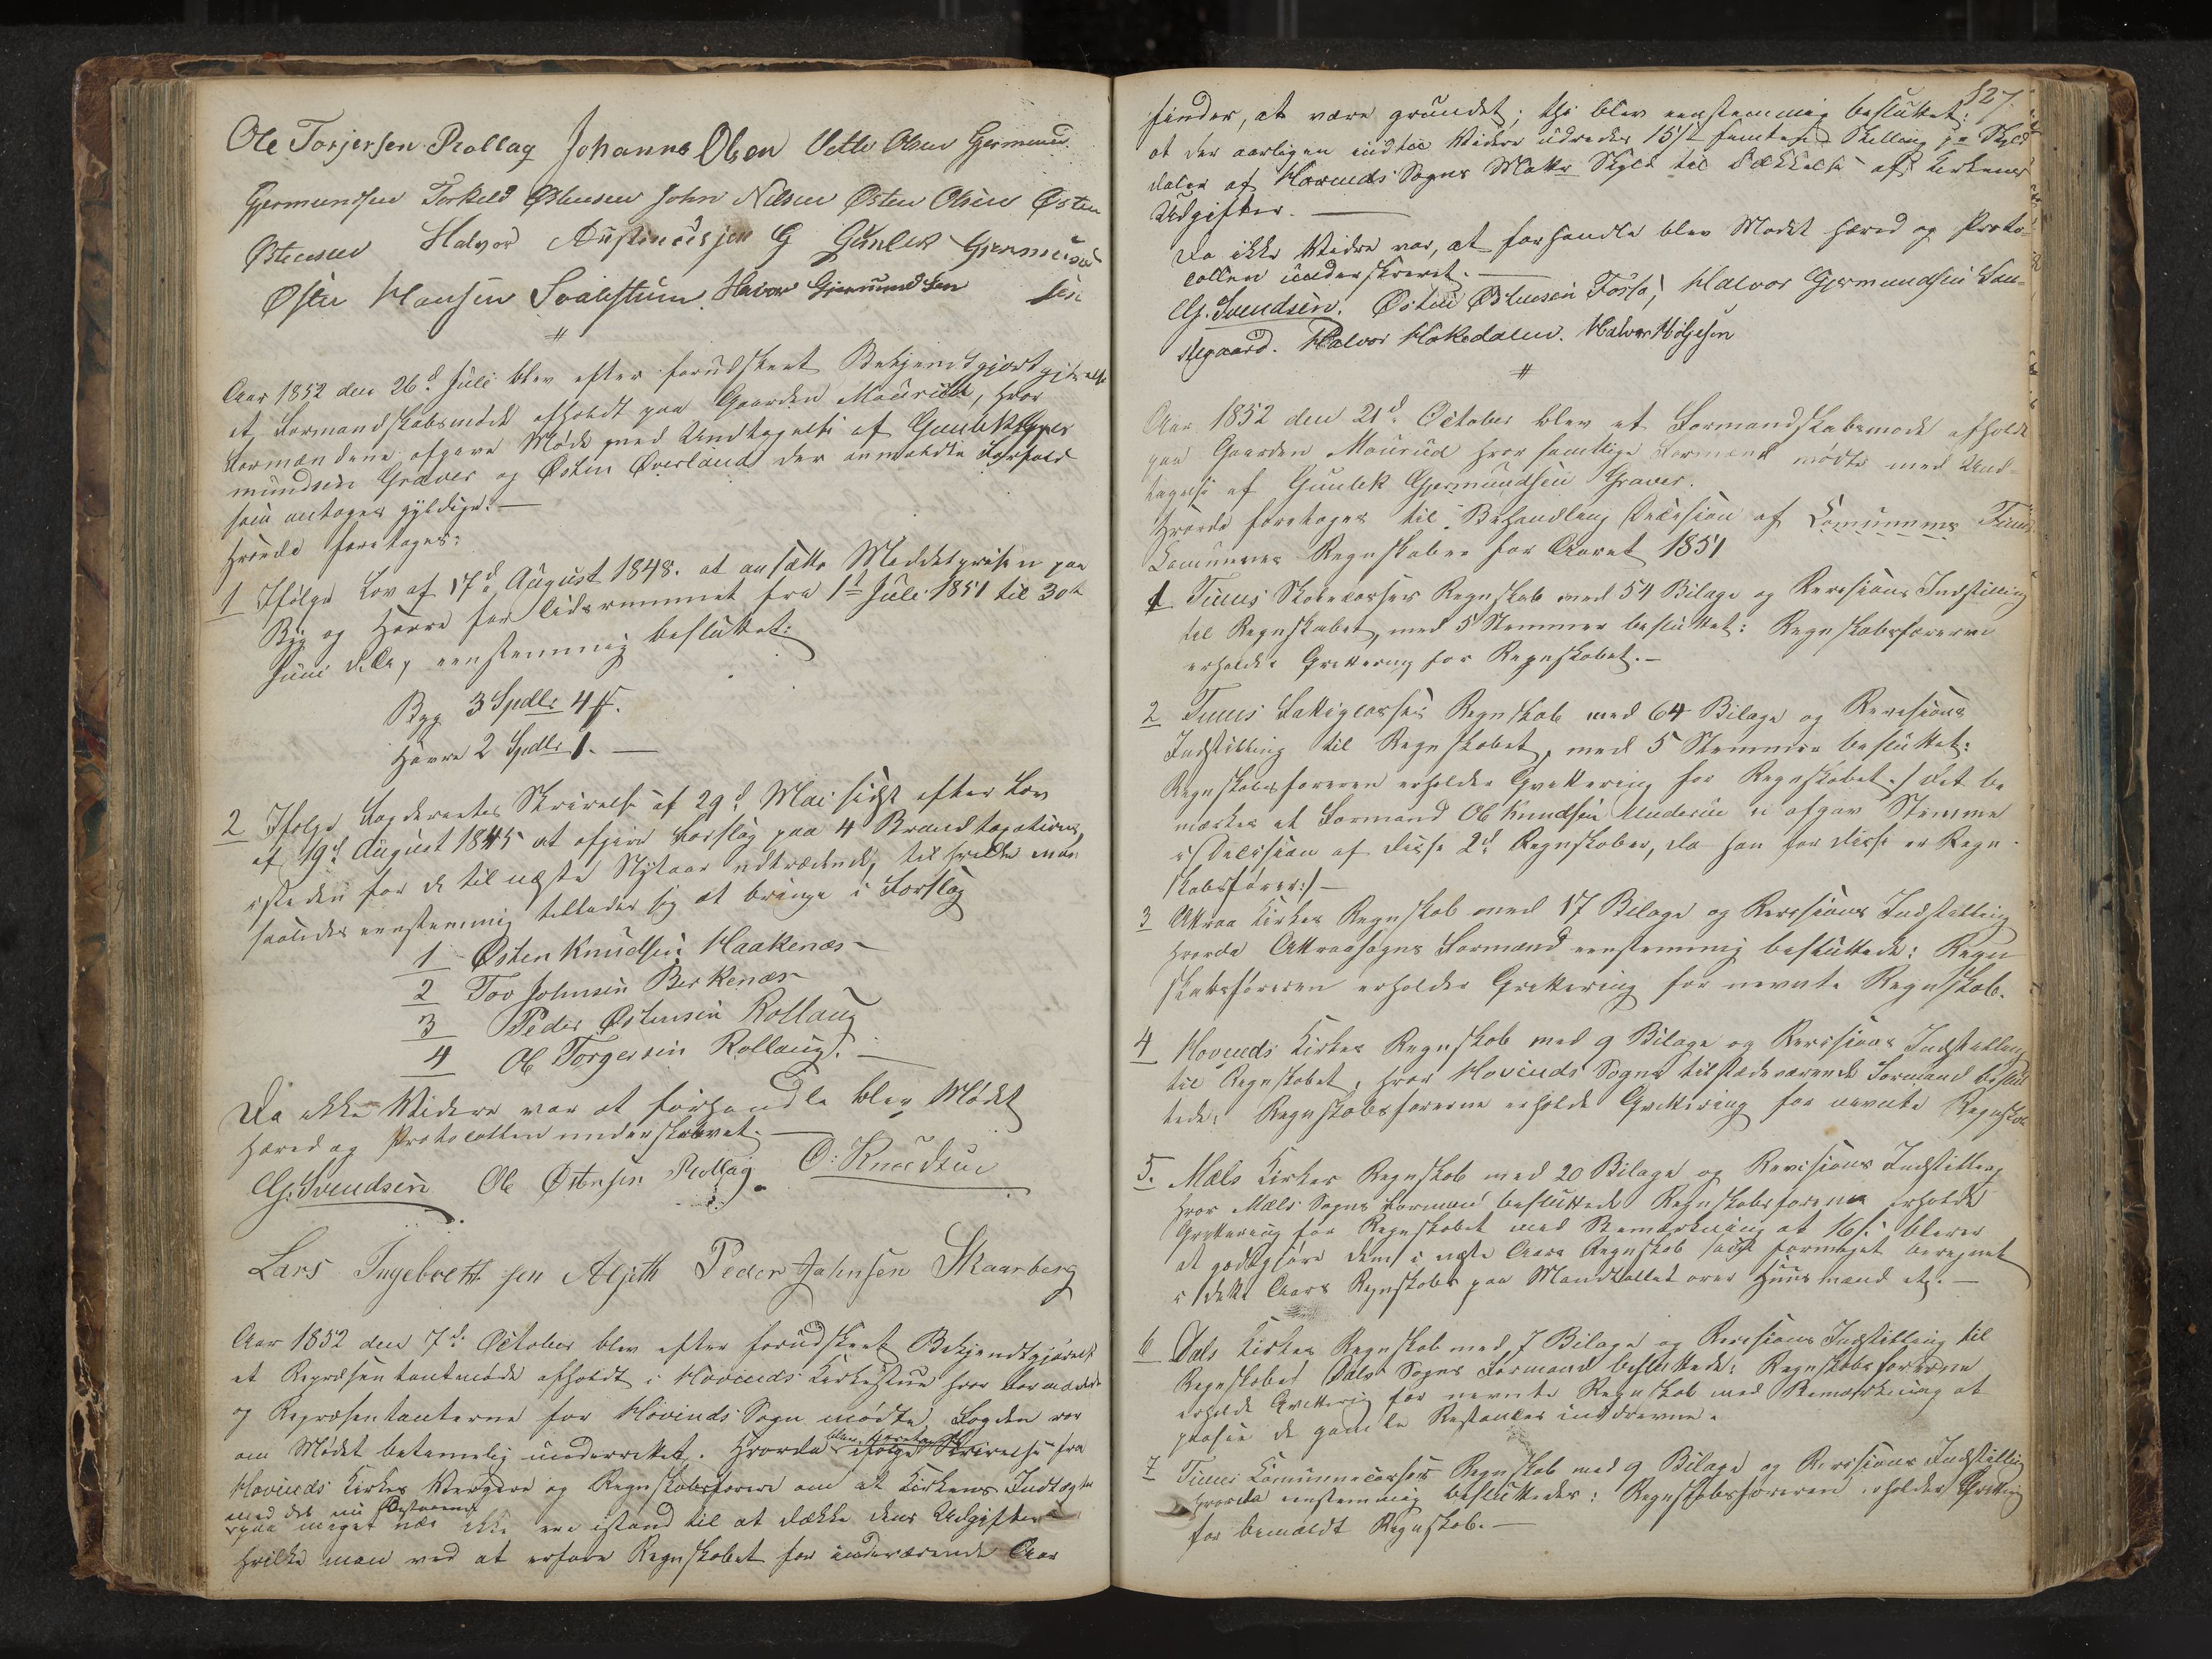 Ole Torjersen Rollag Johannes Olsen Vetle Olsen Germund
Gjermundsen Torkeld Østensen John Nilsen Østen Olsen Østen
Østensen Halvor Augustinussen G Gunlek Gjermund
Østen Hansen Svalestuen Halvor Gjermundsen sen
#
Aar 1852 den 26d Juli blev efter forudskeet Bekjendtgjørelse
et Formandskabsmøde afholdt paa Gaarden Maurud, hvor
Formændene afgave Møde med Undtagelse af Gunlek Gjer
mundsen Graver og Østen Øverland der anmeldte Forfald
som antoges gyldige.—
Hvorda foretoges:
1 Ifølge Lov af 17d August 1848. at ansætte Middelprisen paa
Byg og Havre for Tidsrummet fra 1st Juli 1851 til 30te
Juni d.A., eenstemmig besluttet:
Byg 3 Spdlr 4 ₰.
Havre 2 Spdlr 1.—
2 Ifølge Fogderiets Skrivelse af 29d Mai sidst efter Lov
af 19d August 1845 at afgive Forslag paa 4 Brandtaxationsm.
isteden for de til næste Nytaar udtrædende, til hvilke man
saaledes eenstemmig tillader sig at bringe i Forslag
1 Østen Knudsen Haakenæs
2 Tov Johnsen Berkenæs
3 Peder Østensen Rollaug
4 Ole Torgersen Rollaug.—
Da ikke Videre var at forhandle blev Mødet
hævet og Protocollen underskrevet.—
G. Svendsen Ole Østensen Rollag. O: Knudsen
Lars Ingebretsen Alseth Peder Johnsen Skaarberg
Aar 1852 den 7d October blev efter forudskeet Bekjendtgjørelse
et Repræsentantmøde afholdt i Hovinds Kirkestue hvor Formænd
og Repræsentanterne for Hovinds Sogn mødte, Fogden var
om Mødet betimelig underrettet. Hvorda blev foretaget ifølge Skrivelse fra
Hovinds Kirkes Værgere og Regnskabsførere om at Kirkens Indtægter
med det nu Bestaaende
paa meget nær ikke ere istand til at dække dens Udgifter
hvilke man ved at erfare Regnskabet for indeværende Aar
127.
finder, at være grundet; thi blev eenstemmig besluttet:
at der aarligen indtil Videre udredes 15/ femten Skilling pr Skyld
daler af Hovinds Sogns Matr Skyld til Dækkelse af Kirkens
Udgifter.—
Da ikke Videre var, at forhandle blev Mødet hævet og Proto-
collen underskrevet.—
G. Svendsen. Østen Østensen Fosso, Halvor Gjermundsen San-
degaard. Halvor Hakedalen. Halvor Helgesen
#
Aar 1852 den 21d October blev et Formandskabsmøde afholdt
paa Gaarden Maurud hvor samtlige Formænd mødte med Und-
tagelse af Gunlek Gjermundsen Graver.
Hvorda foretoges til Behandling Decision af Comunens Tinns
Comunens Regnskaber for Aaret 1851
1 Tinns Skolecasses Regnskab med 54 Bilage og Revisions Indstilling
til Regnskabet, med 5 Stemmer besluttet: Regnskabsføreren
erholder Qvittering for Regnskabet.—
2 Tinns Fattigcasses Regnskab med 64 Bilage og Revisions
Indstilling til Regnskabet, med 5 Stemmer besluttet:
Regnskabsføreren erholder Qvittering for Regnskabet./ Det be
mærkes at Formand Ole Knudsen Mudersue ei afgav Stemme
i Decision af disse 2d Regnskaber, da han for disse er Regn-
skabsfører:/—
3 Attraa Kirkes Regnskab med 17 Bilage og Revisions Indstilling
hvorda Attraasogns Formænd eenstemmig besluttede: Regn
skabsføreren erholder Qvittering for nevnte Regnskab.
4 Hovinds Kirkes Regnskab med 9 Bilage og Revisions Indstilling
til Regnskabet, hvor Hovinds Sogns tilstædeværende Formænd beslut
tede: Regnskabsførerne erholde Qvittering for nevnte Regnskab
5. Mæls Kirkes Regnskab med 20 Bilage og Revisions Indstilling
hvor Mæls Sogns Formænd besluttede Regnskabsførerne erholde
Qvittering for Regnskabet med Bemærkning at 16 s: bliver
at godtgjøre dem i næste Aars Regnskab som formeget beregnet
i dette Aars Regnskab paa Mandtallet over Huusmænd etc.—
6 Dals Kirkes Regnskab med 7 Bilage og Revisions Indstilling til
Regnskabet Dals Sogns Formænd besluttede: Regnskabsførerne
erholde Qvittering for nevnte Regnskab med Bemærkning at
paasee de gamle Restancer inddrevne.
7 Tinns Comunecasses Regnskab med 9 Bilage og Revisions Indstilling
hvorda eenstemmig besluttedes: Regnskabsføreren erholder Qvittering
for bemældt Regnskab.—